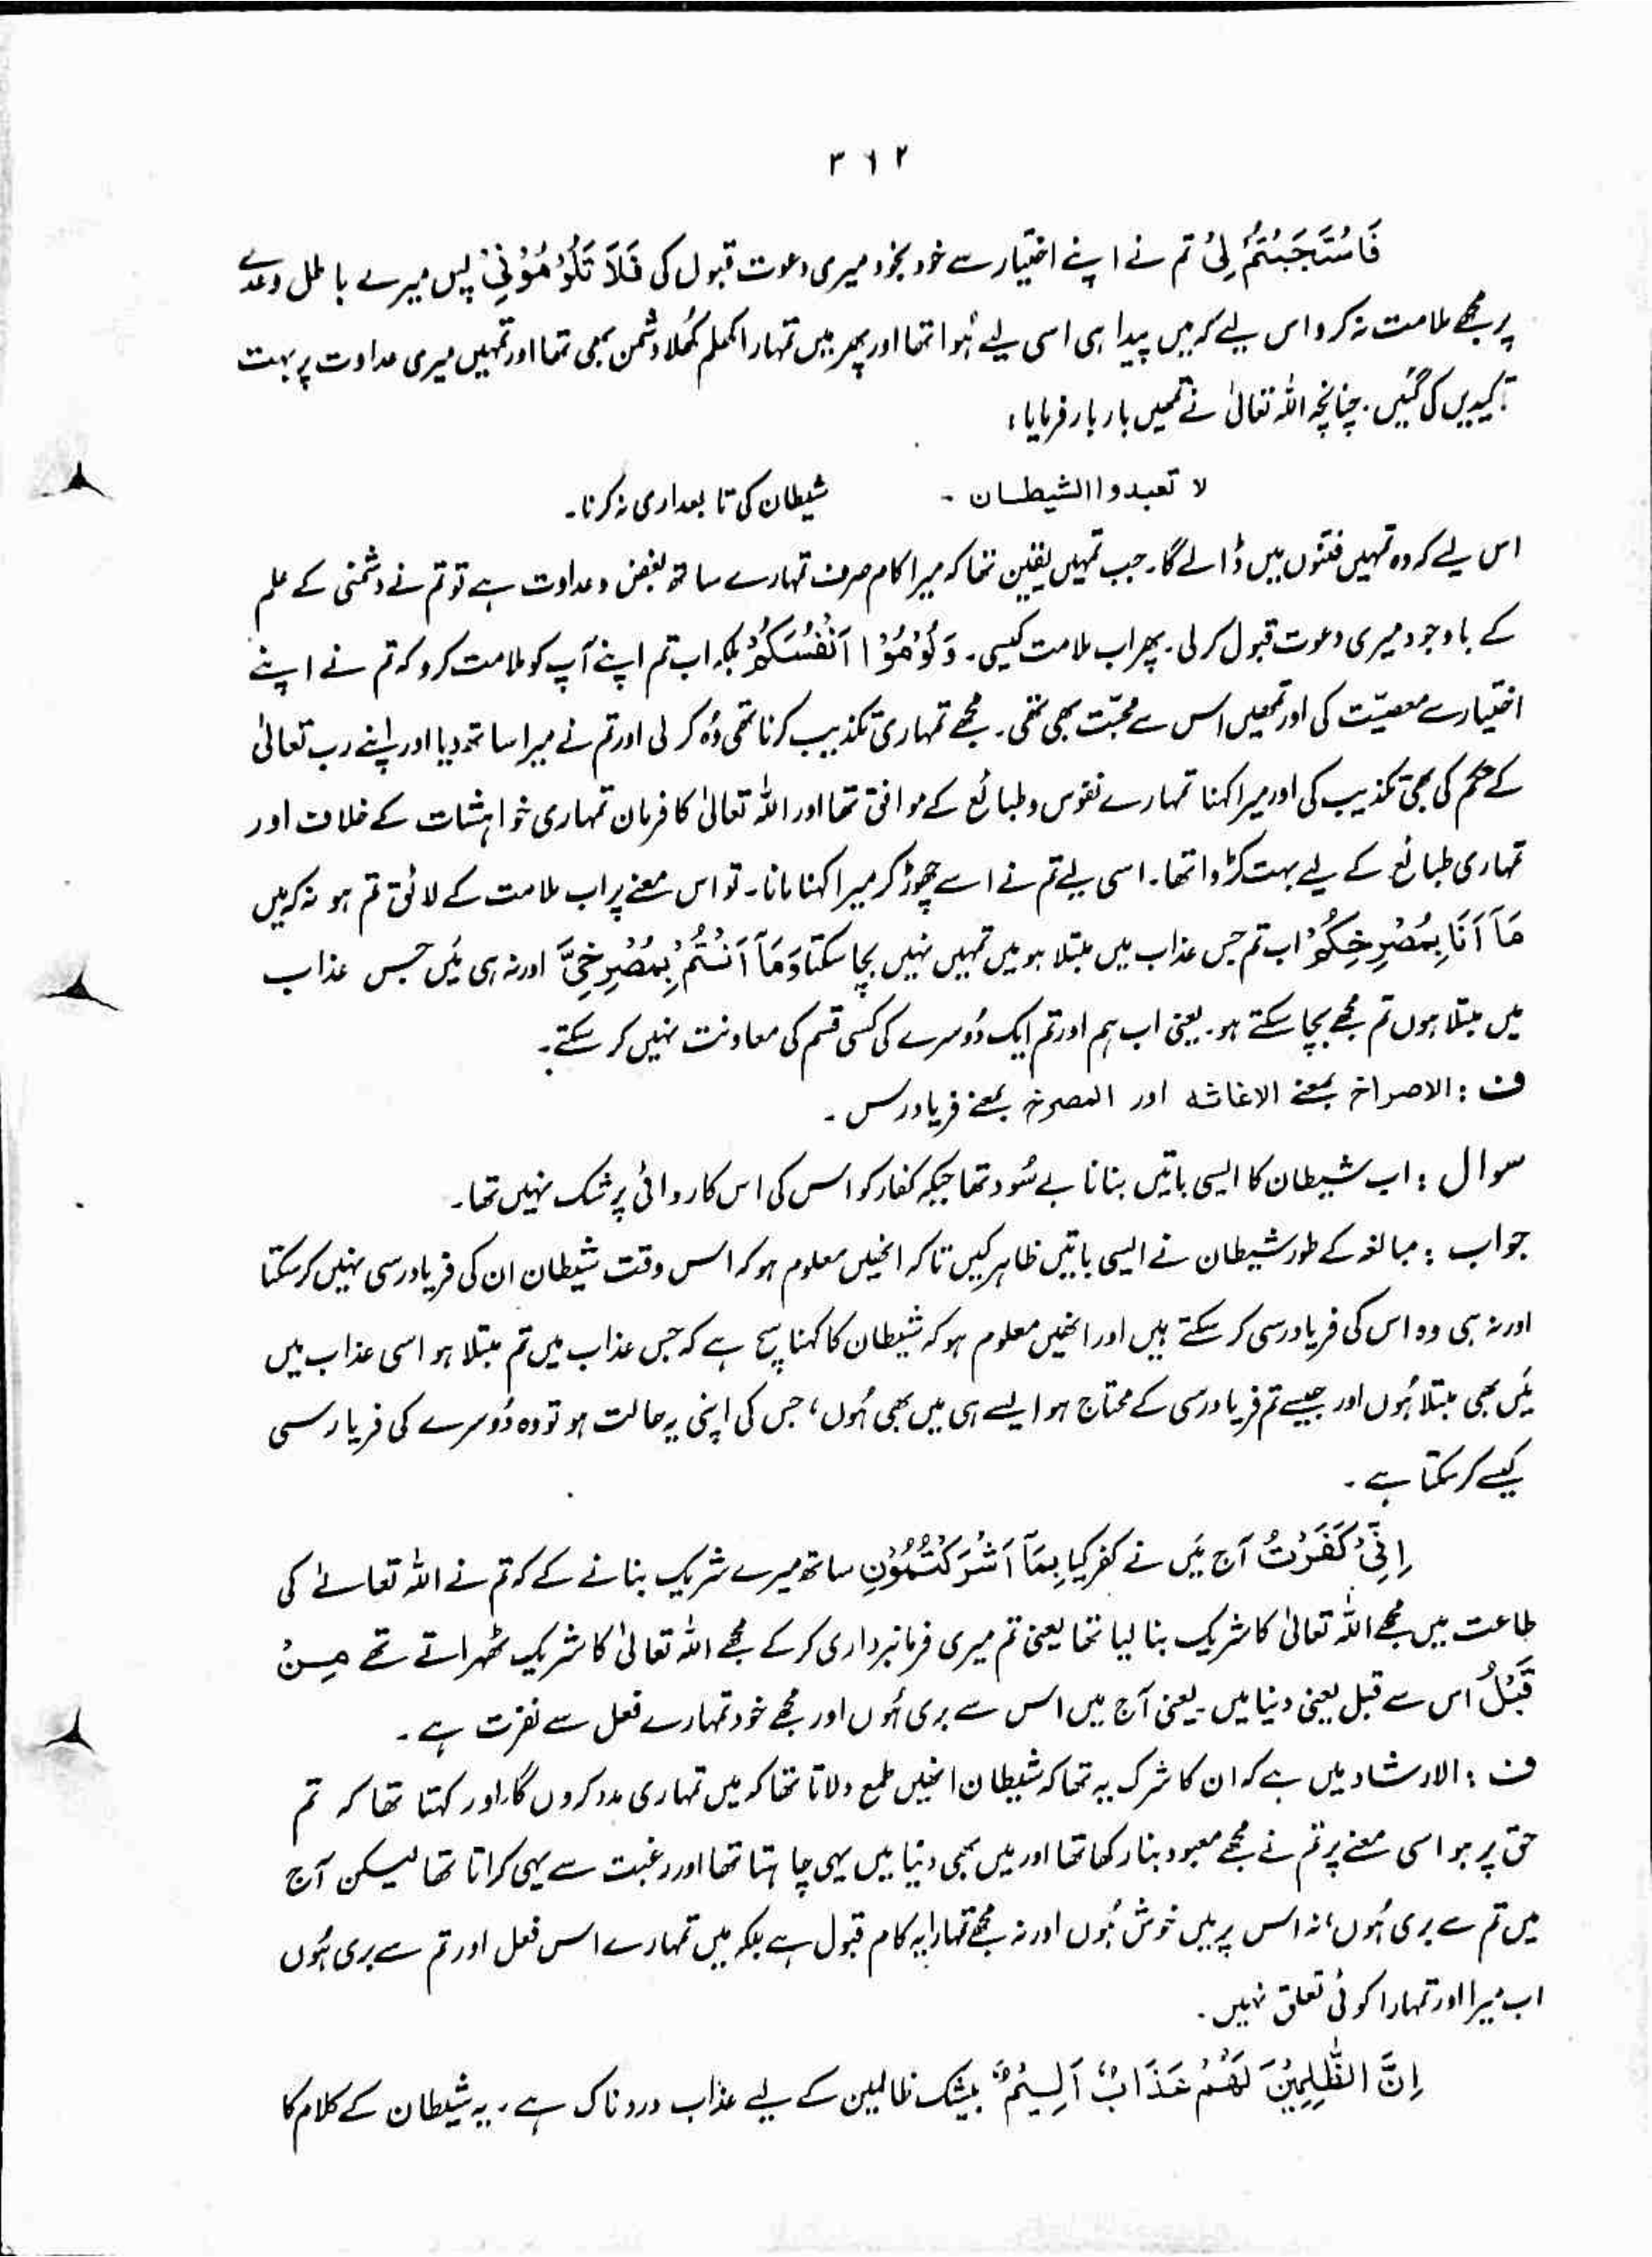 ۳۱۲
فَاسْتَجَبْتُمْ لِیْ تم نے اپنے اختیار سے خود بخود میری دعوت قبول کی فَلَا تَلُوْمُوْنِیْ پس میرے باطل وعدے
پر مجھے ملامت نہ کرو اس لیے کہ میں پیدا ہی اسی لیے ہُوا تھا اور پھر میں تمہارا کھلم کھُلا دشمن بھی تھا اور تمہیں میری عداوت پر بہت
تاکیدیں کی گئیں. چنانچہ اللہ تعالیٰ نے تمھیں بار بار فرمایا:
لا تعبدوا الشیطان ۔ شیطان کی تابعداری نہ کرنا۔
اس لیے کہ وہ تمہیں فتنوں میں ڈالے گا۔ جب تمہیں یقین تھا کہ میرا کام صرف تمہارے ساتھ بغض وعداوت ہے تو تم نے دشمنی کے علم
کے باوجود میری دعوت قبول کر لی۔ پھر اب ملامت کیسی۔ وَلُوْمُوْٓا اَنْفُسَكُمْ بلکہ اب تم اپنے آپ کو ملامت کرو کہ تم نے اپنے
اختیار سے معصیّت کی اور تمھیں اس سے محبّت بھی تھی۔ مجھے تمہاری تکذیب کرنا تھی وُہ کر لی اور تم نے میرا ساتھ دیا اور اپنے رب تعالیٰ
کے حکم کی بھی تکذیب کی اور میرا کہنا تمہارے نفوس وطبائع کے موافق تھا اور اللہ تعالیٰ کا فرمان تمہاری خواہشات کے خلاف اور
تمہاری طبائع کے لیے بہت کڑوا تھا۔ اسی لیے تم نے اسے چھوڑ کر میرا کہنا مانا۔ تو اس معنے پر اب ملامت کے لائق تم ہو نہ کہ میں
مَآ اَنَا بِمُصْرِخِكُمْ اب تم جس عذاب میں مبتلا ہو میں تمہیں نہیں بچا سکتا وَمَآ اَنْتُمْ بِمُصْرِخِیَّ اور نہ ہی مَیں جس عذاب
میں مبتلا ہوں تم مجھے بچا سکتے ہو۔ یعنی اب ہم اور تم ایک دُوسرے کی کسی قسم کی معاونت نہیں کر سکتے۔
ف : الاصراخ بمعنے الاغاثہ اور المصرخ بمعنے فریادرس ۔
سوال : اب شیطان کا ایسی باتیں بنانا بے سُود تھا جبکہ کفار کو اس کی اس کاروائی پر شک نہیں تھا۔
جواب : مبالغہ کے طور شیطان نے ایسی باتیں ظاہر کیں تاکہ انھیں معلوم ہو کہ اس وقت شیطان ان کی فریادرسی نہیں کر سکتا
اور نہ ہی وہ اس کی فریادرسی کر سکتے ہیں اور انھیں معلوم ہو کہ شیطان کا کہنا سچ ہے کہ جس عذاب میں تم مبتلا ہو اسی عذاب میں
مَیں بھی مبتلا ہُوں اور جیسے تم فریادرسی کے محتاج ہو ایسے ہی میں بھی ہُوں، جس کی اپنی یہ حالت ہو تو وہ دُوسرے کی فریارسی
کیسے کر سکتا ہے ۔
اِنِّیْ كَفَرْتُ آج مَیں نے کفر کیا بِمَآ اَشْرَكْتُمُوْنِ ساتھ میرے شریک بنانے کے کہ تم نے اللہ تعالےٰ کی
طاعت میں مجھے اللہ تعالیٰ کا شریک بنا لیا تھا یعنی تم میری فرمانبرداری کر کے مجھے اللہ تعالیٰ کا شریک ٹھہراتے تھے مِنْ
قَبْلُ اس سے قبل یعنی دنیا میں۔ یعنی آج میں اس سے بری ہُوں اور مجھے خود تمہارے فعل سے نفرت ہے ۔
ف : الارشاد میں ہے کہ ان کا شرک یہ تھا کہ شیطان انھیں طمع دلاتا تھا کہ میں تمہاری مدد کروں گا اور کہتا تھا کہ تم
حق پر ہو اسی معنے پر تم نے مجھے معبود بنا رکھا تھا اور میں بھی دنیا میں یہی چاہتا تھا اور رغبت سے یہی کراتا تھا لیکن آج
میں تم سے بری ہُوں، نہ اس پر میں خوش ہُوں اور نہ مجھے تمہارا یہ کام قبول ہے بلکہ میں تمہارے اس فعل اور تم سے بری ہُوں
اب میرا اور تمہارا کوئی تعلق نہیں.
اِنَّ الظّٰلِمِیْنَ لَهُمْ عَذَابٌ اَلِیْمٌ بیشک ظالمین کے لیے عذاب دردناک ہے ۔ یہ شیطان کے کلام کا